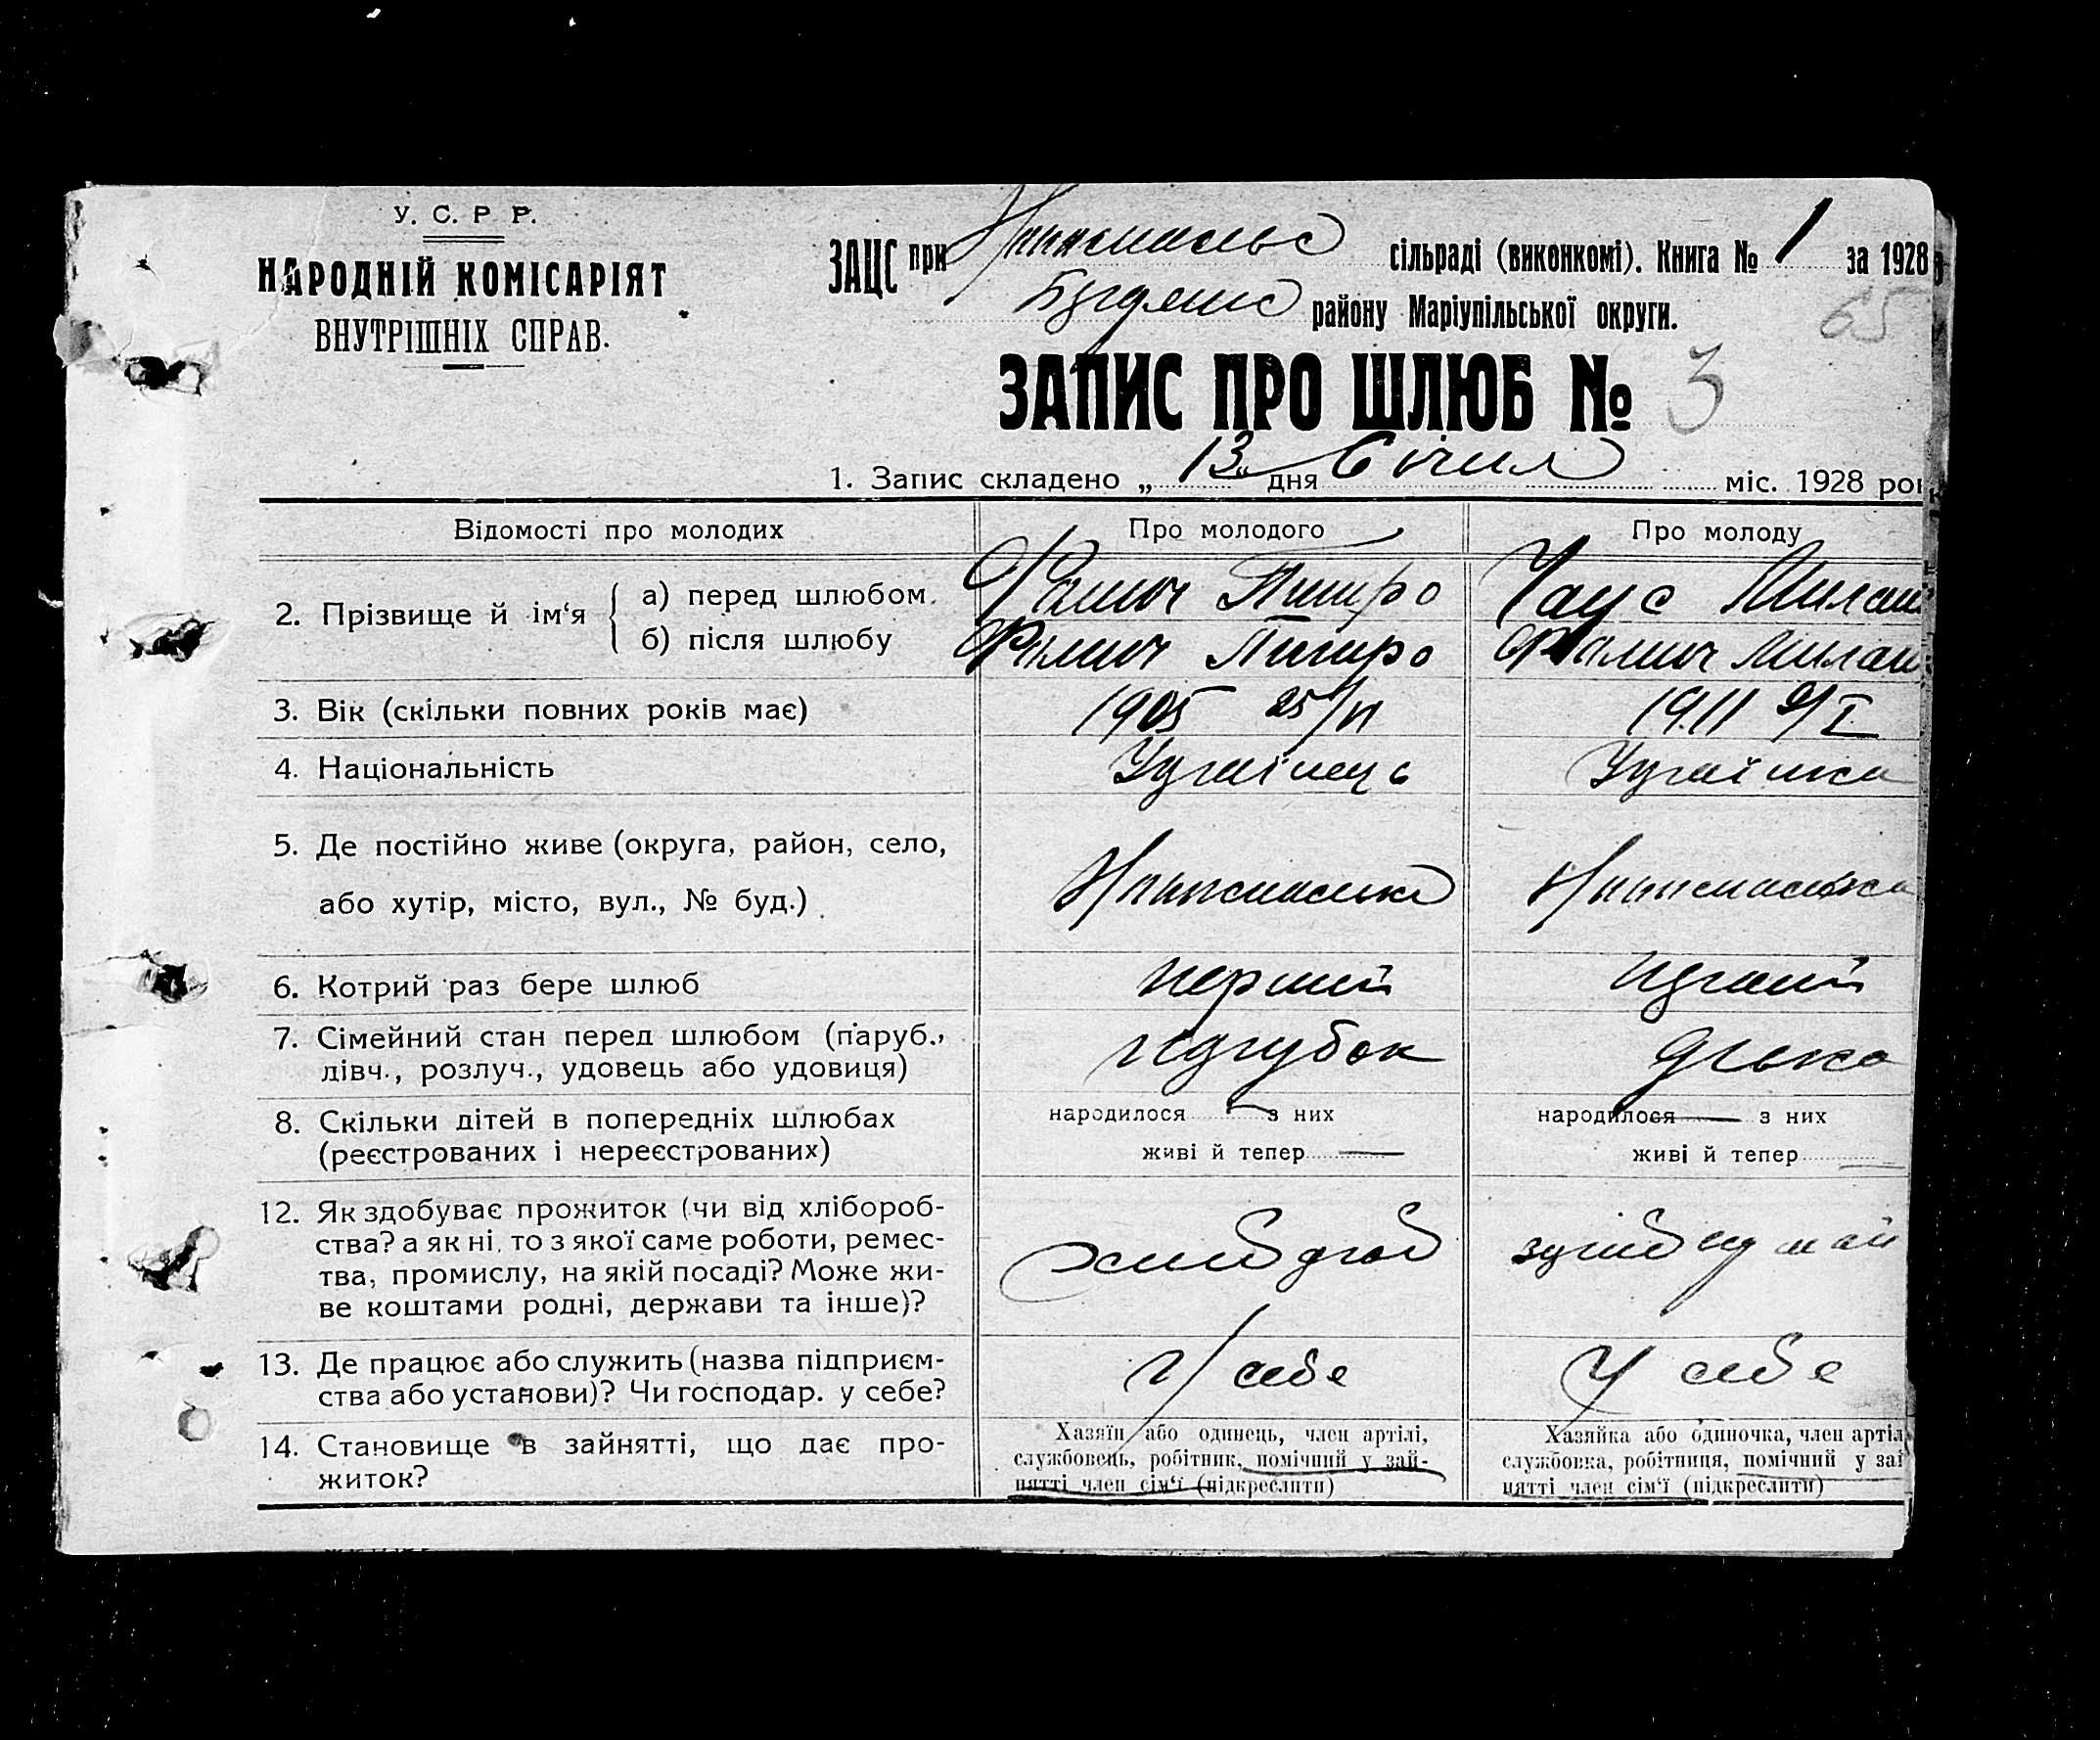 У. С. Р. Р.
НАРОДНІЙ КОМІСАРІЯТ
ВНУТРІШНІХ СПРАВ.
ЗАЦС при сільраді (виконкомі). Книга № 1 за 1928
району Маріупільської округи.
65
ЗАПИС ПРО ШЛЮБ № 3
1. Запис складено „ 13 " дня Січня міс. 1928 рок
Відомості про молодих Про молодого Про молоду
2. Прізвище й ім‘я { а) перед шлюбом. Пигиро Милан
б) після шлюбу Пигиро Милан
3. Вік (скільки повних років має) 1905 25/VI 1911 9/I
4. Національність Украінець Украінка
5. Де постійно живе (округа, район, село,
або хутір, місто, вул., № буд.)
6. Котрий раз бере шлюб перший перший
7. Сімейний стан перед шлюбом (паруб.,
дівч., розлуч., удовець або удовиця) парубок дівка
8. Скільки дітей в попередніх шлюбах
(реєстрованих і нереєстрованих)
народилося — з них
живі й тепер —
народилося — з них
живі й тепер —
12. Як здобуває прожиток (чи від хлібороб-
ства? а як ні, то з якої саме роботи, ремес-
тва, промислу, на якій посаді? Може жи-
ве коштами родні, держави та інше)?
хлібороб
13. Де працює або служить (назва підприєм-
ства або установи)? Чи господар. у себе?
У себе У себе
14. Становище в зайнятті, що дає про-
житок?
Хазяїн або одинець, член артілі,
службовець, робітник, помічний у зай-
нятті член сім‘ї (підкреслити)
Хазяйка або одиночка, член артіл
службовка, робітниця, помічний у зай
нятті член сім‘ї (підкреслити)